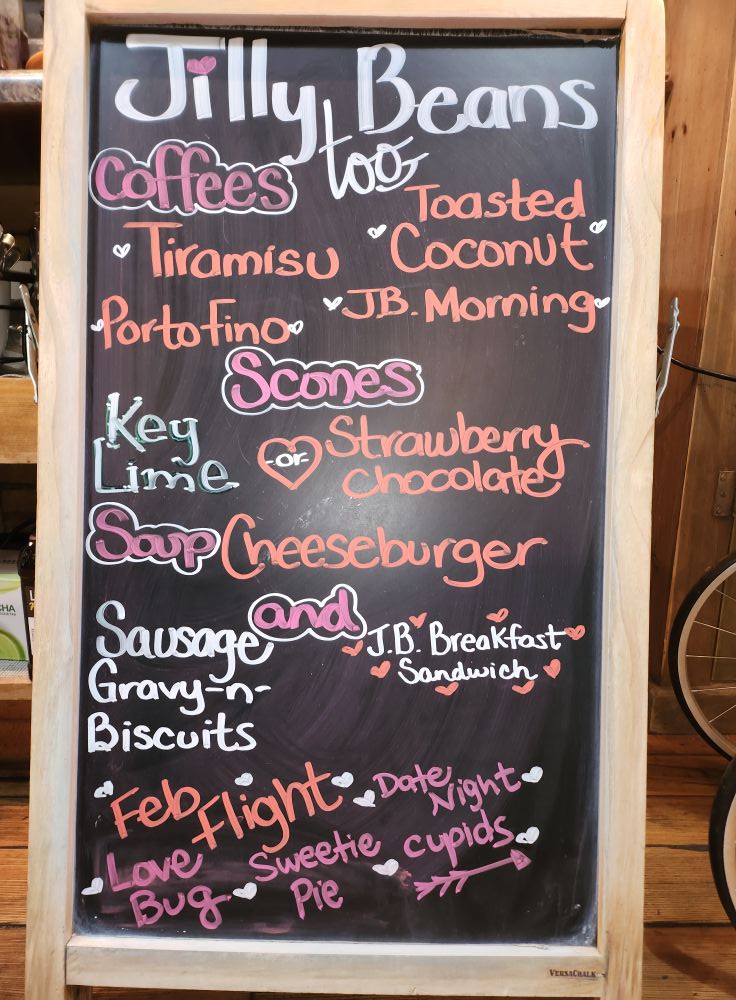 Jilly Beans
too
Coffees
Toasted
Tiramisu
Coconut
Portofino
J.B. Morning
Scones
Key
Lime
-or-
Strawberry
Chocolate
Soup
Cheeseburger
and
Sausage
Gravy-n-
Biscuits
J.B. Breakfast
Sandwich
Feb
Flight
Date
Night
Love
Bug
Sweetie
Pie
cupids
CHA
VERSACHALK